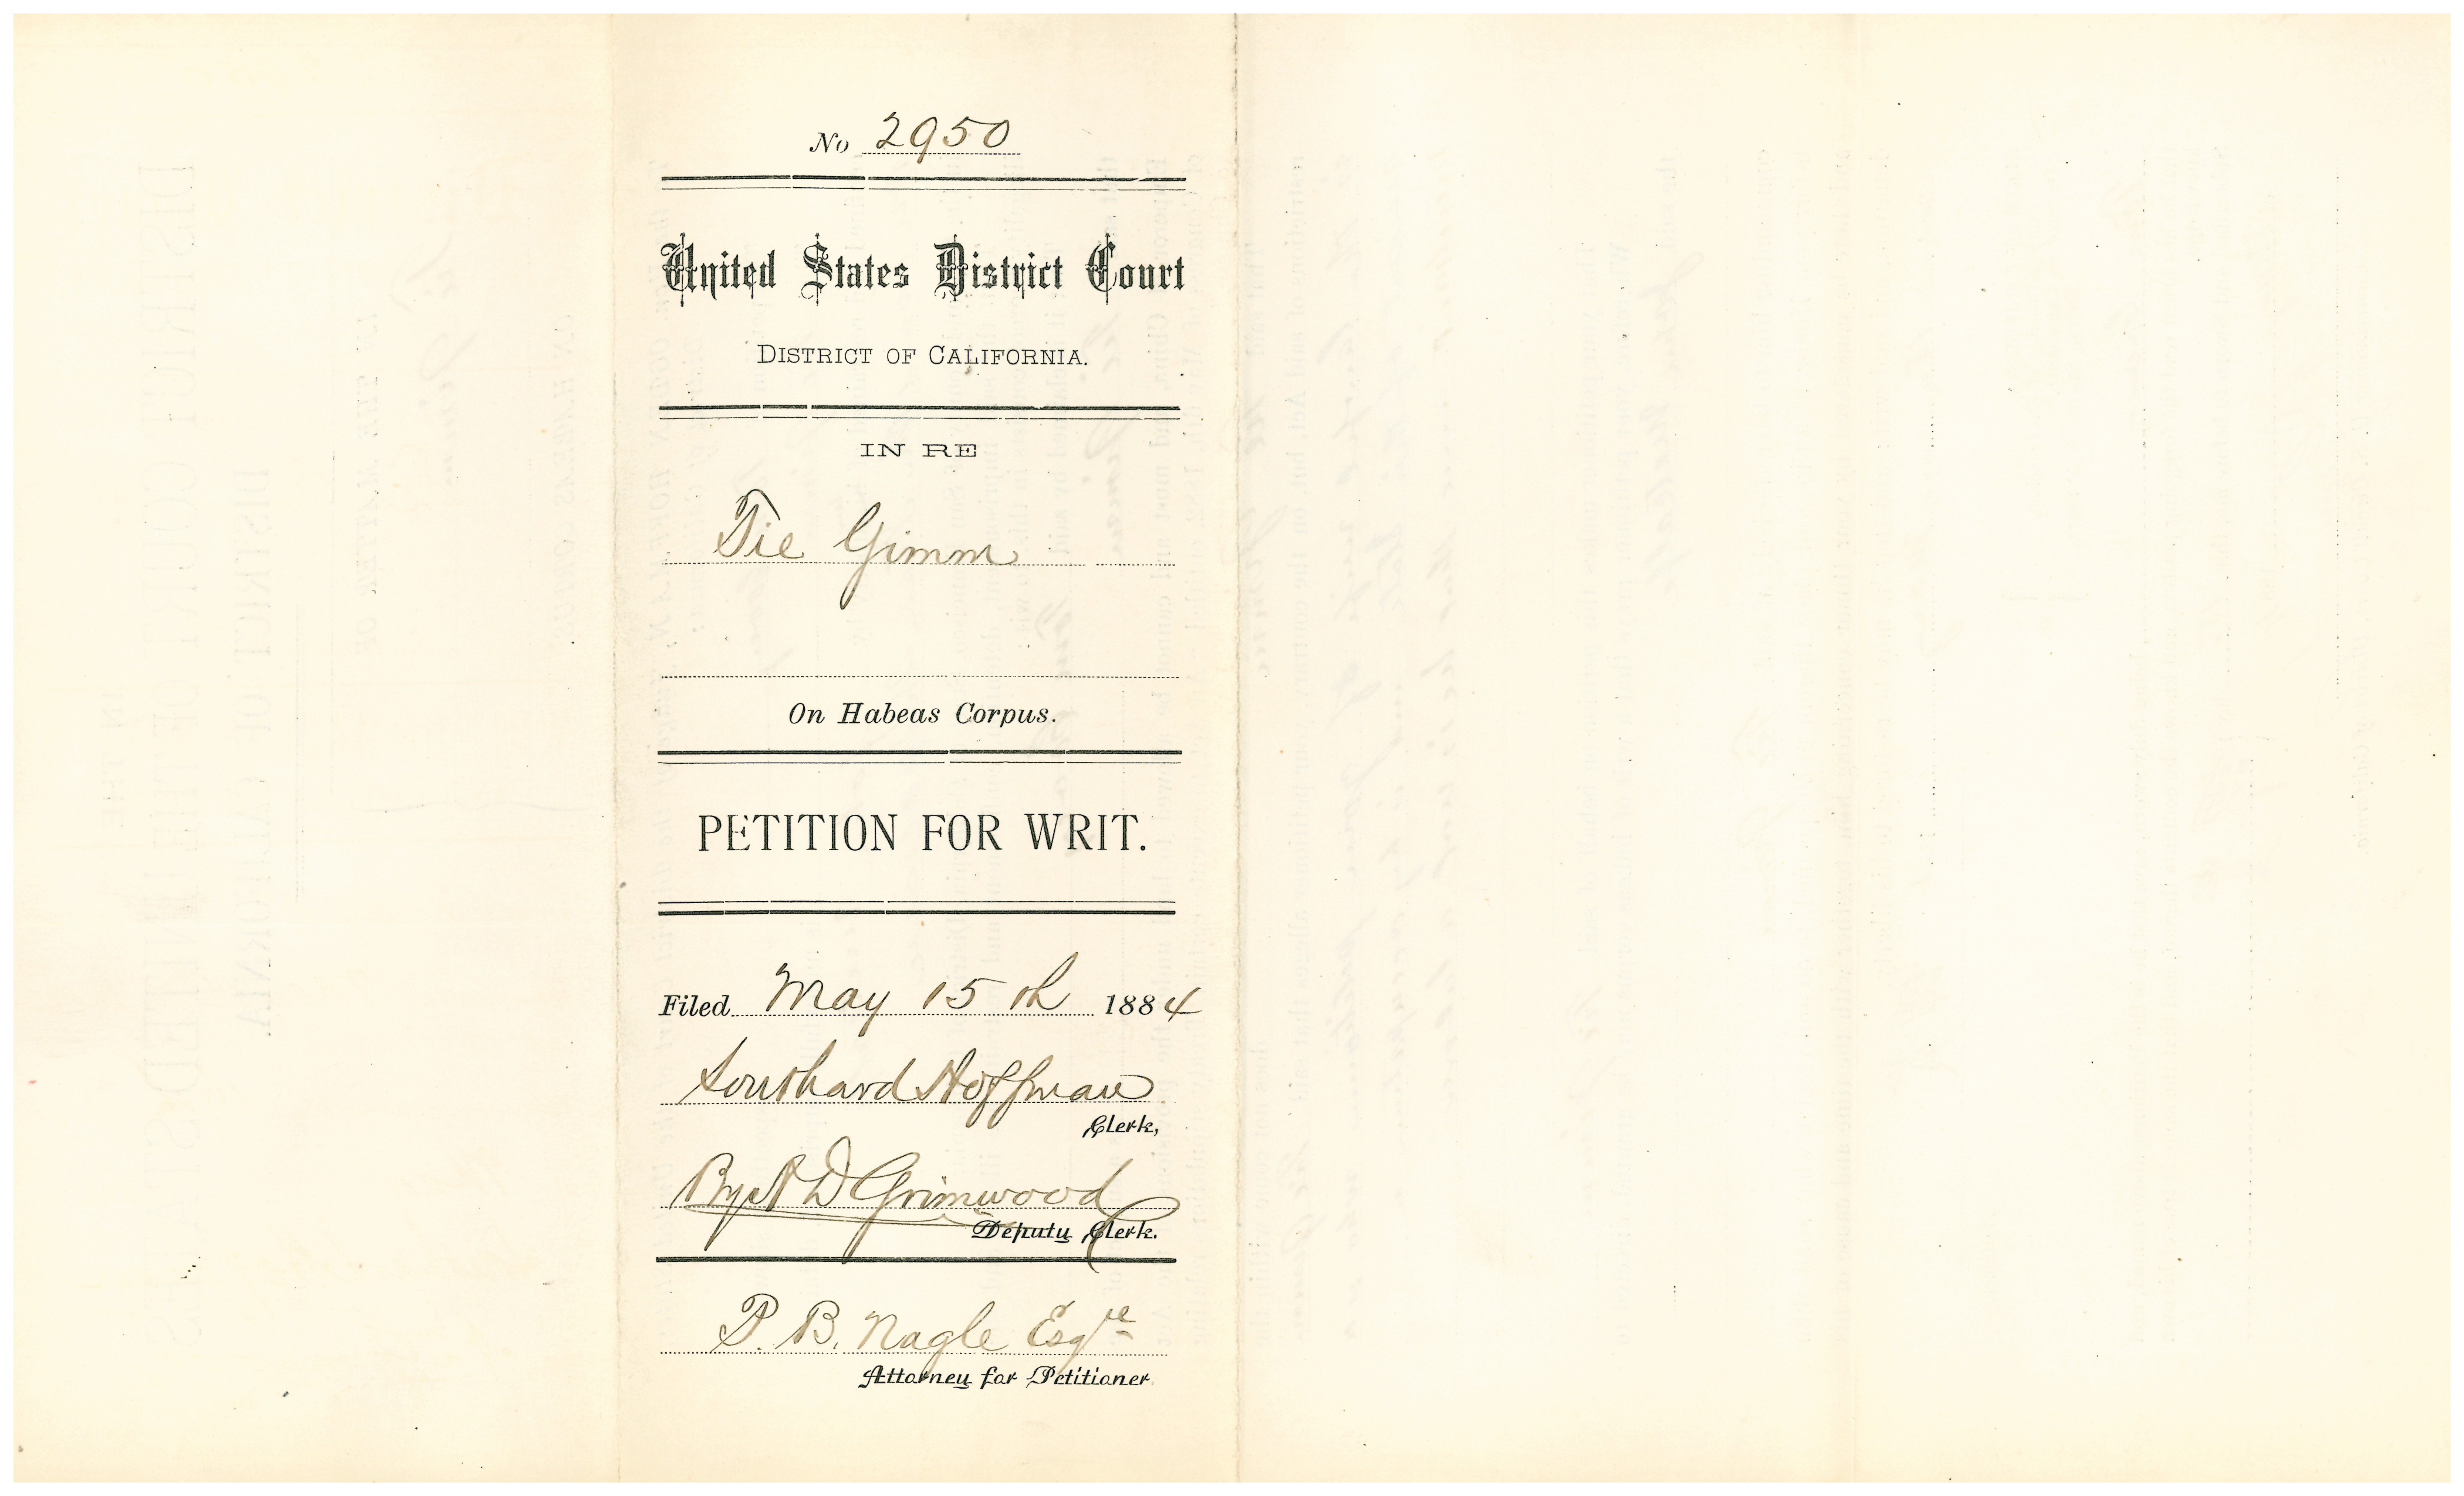 No 2950
United States District Court
DISTRICT OF CALIFORNIA.
IN RE
Tie Gimm
On Habeas Corpus.
PETITION FOR WRIT.
Filed May 15th 1884
Southard Hoffman
Clerk,
By A D Grimwood
Deputy Clerk.
P. B. Nagle Esqre
Attorney for Petitioner